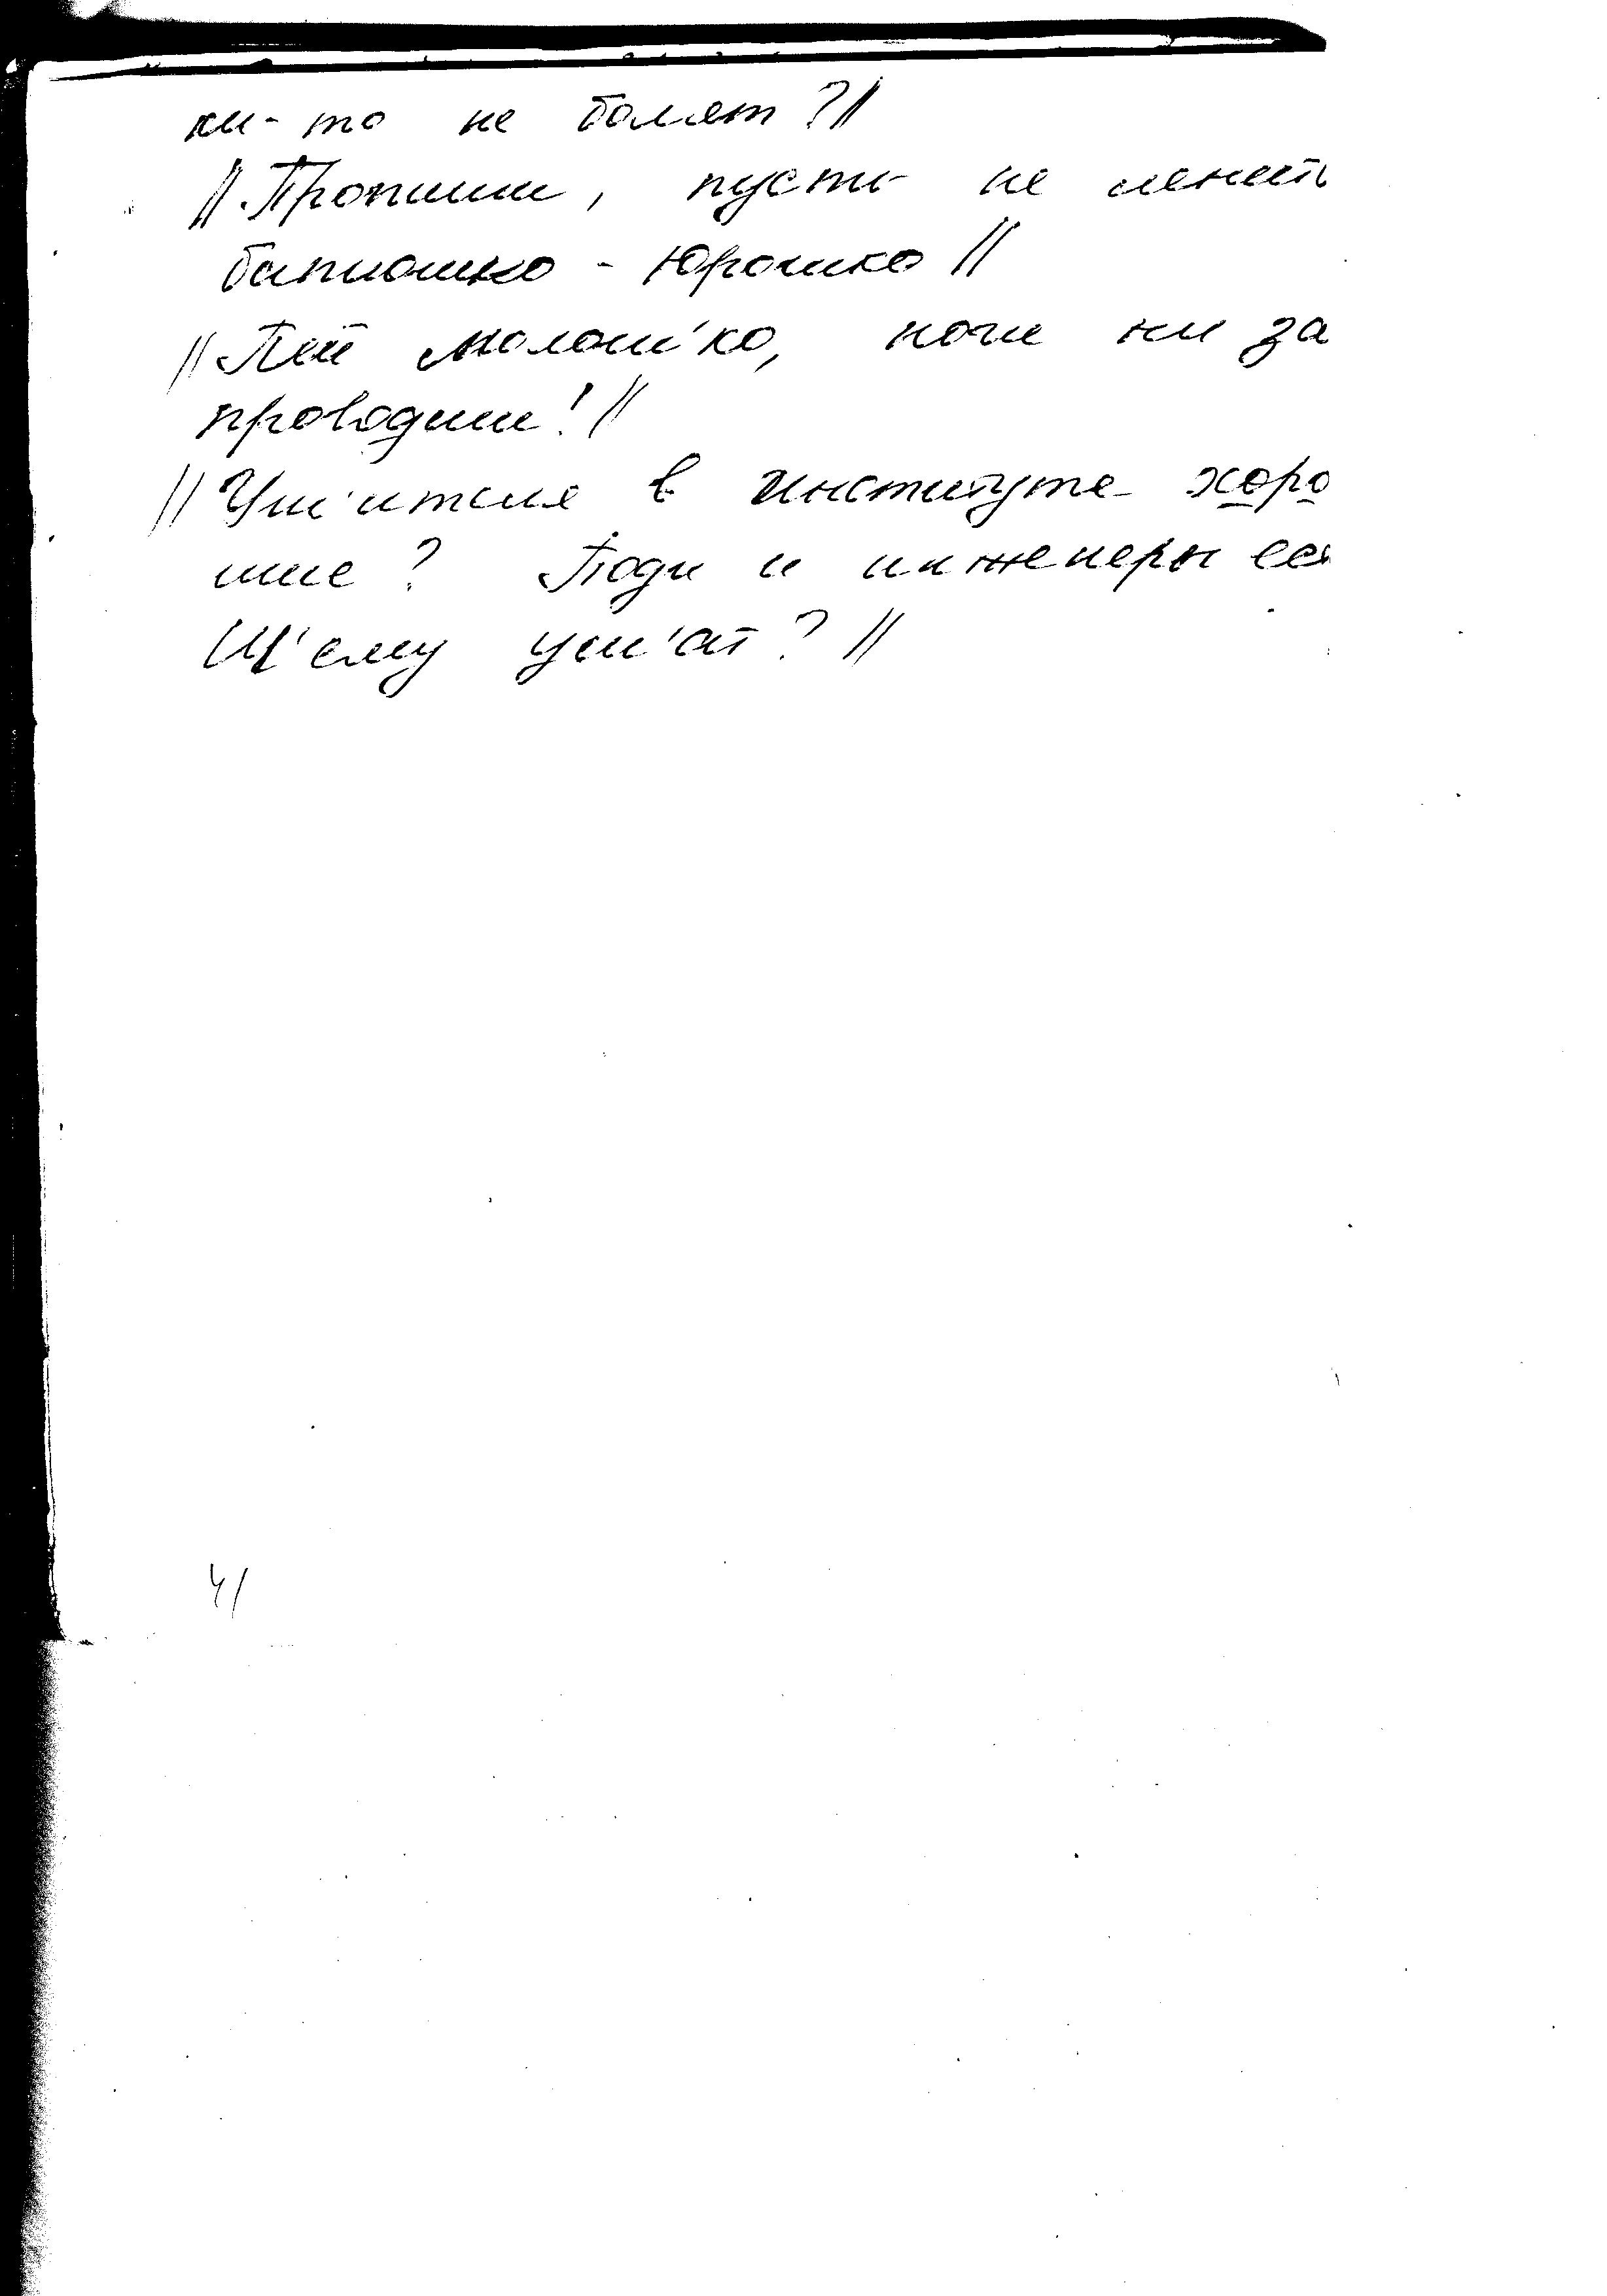 ки-то не болят?//
//Пропиши, пусть не
батюшко - Юрошко//
//Пей молош'ко, ноги ни за
проводиш!//
//Уш'ителя в институте хоро
шие? Поди и инженеры ес
Ш'ему уш'ат?//
41